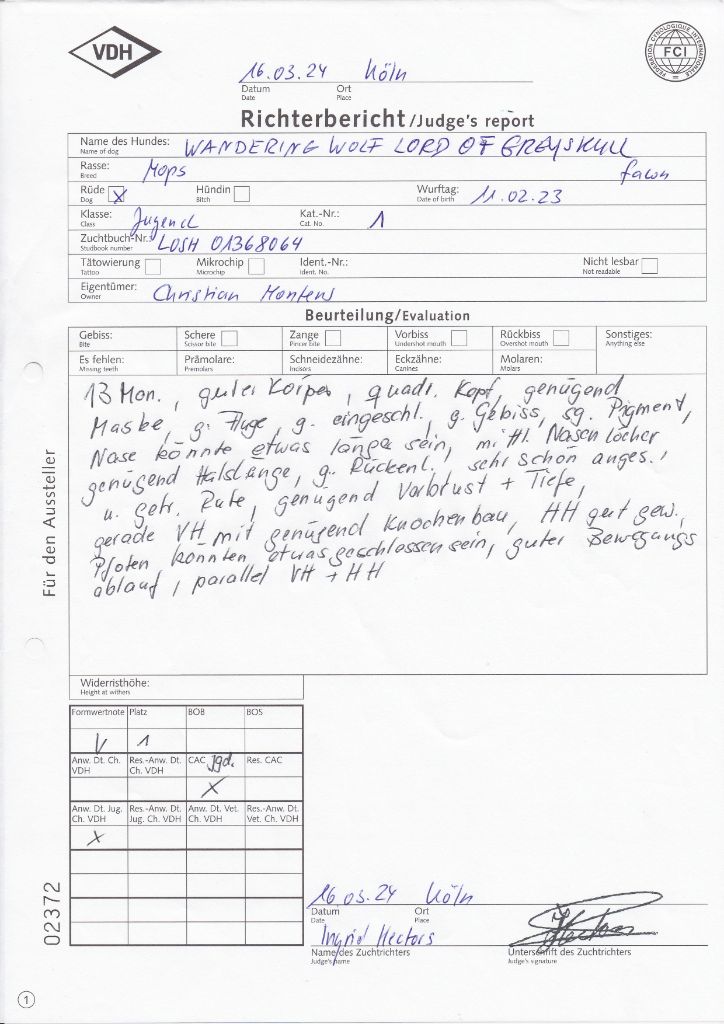 VDH
FEDERATION CYNOLOGIQUE INTERNATIONALE
FCI
16.03.24 Köln
Datum Ort
Date Place
Richterbericht/Judge's report
Name des Hundes: WANDERING WOLF LORD OF GREYSKULL
Name of dog
Rasse: Mops fawn
Breed
Rüde X Hündin Wurftag: 11.02.23
Dog Bitch Date of birth
Klasse: Jugend Kat.-Nr.: 1
Class Cat. No.
Zuchtbuch-Nr.: LOSH 01368064
Studbook number
Tätowierung Mikrochip Ident.-Nr.: Nicht lesbar
Tattoo Microchip Ident. No. Not readable
Eigentümer: Christian Montens
Owner
Beurteilung/Evaluation
Gebiss: Schere Zange Vorbiss Rückbiss Sonstiges:
Bite Scissor bite Pincer bite Undershot mouth Overshot mouth Anything else
Es fehlen: Prämolare: Schneidezähne: Eckzähne: Molaren:
Missing teeth Premolars Incisors Canines Molars
13 Mon., guter Körper, quadr. Kopf, genügend
Maske, g. Auge, g. eingeschl., g. Gebiss, sg. Pigment,
Nase könnte etwas länger sein, mittl. Nasenlöcher
genügend Halslänge, g. Rückenl., sehr schön anges.,
u. getr. Rute, genügend Vorbrust + Tiefe,
gerade VH mit genügend Knochenbau, HH gut gew.,
Pfoten könnten etwas geschlossen sein, guter Bewegungs
ablauf, parallel VH + HH
Für den Aussteller
Widerristhöhe:
Height at withers
Formwertnote Platz BOB BOS
V 1
Anw. Dt. Ch. VDH Res.-Anw. Dt. Ch. VDH CAC Jgd. Res. CAC
X
Anw. Dt. Jug. Ch. VDH Res.-Anw. Dt. Jug. Ch. VDH Anw. Dt. Vet. Ch. VDH Res.-Anw. Dt. Vet. Ch. VDH
X
02372
16.03.24 Köln
Datum Ort
Date Place
Ingrid Hectors
Name des Zuchtrichters Unterschrift des Zuchtrichters
Judge's name Judge's signature
1